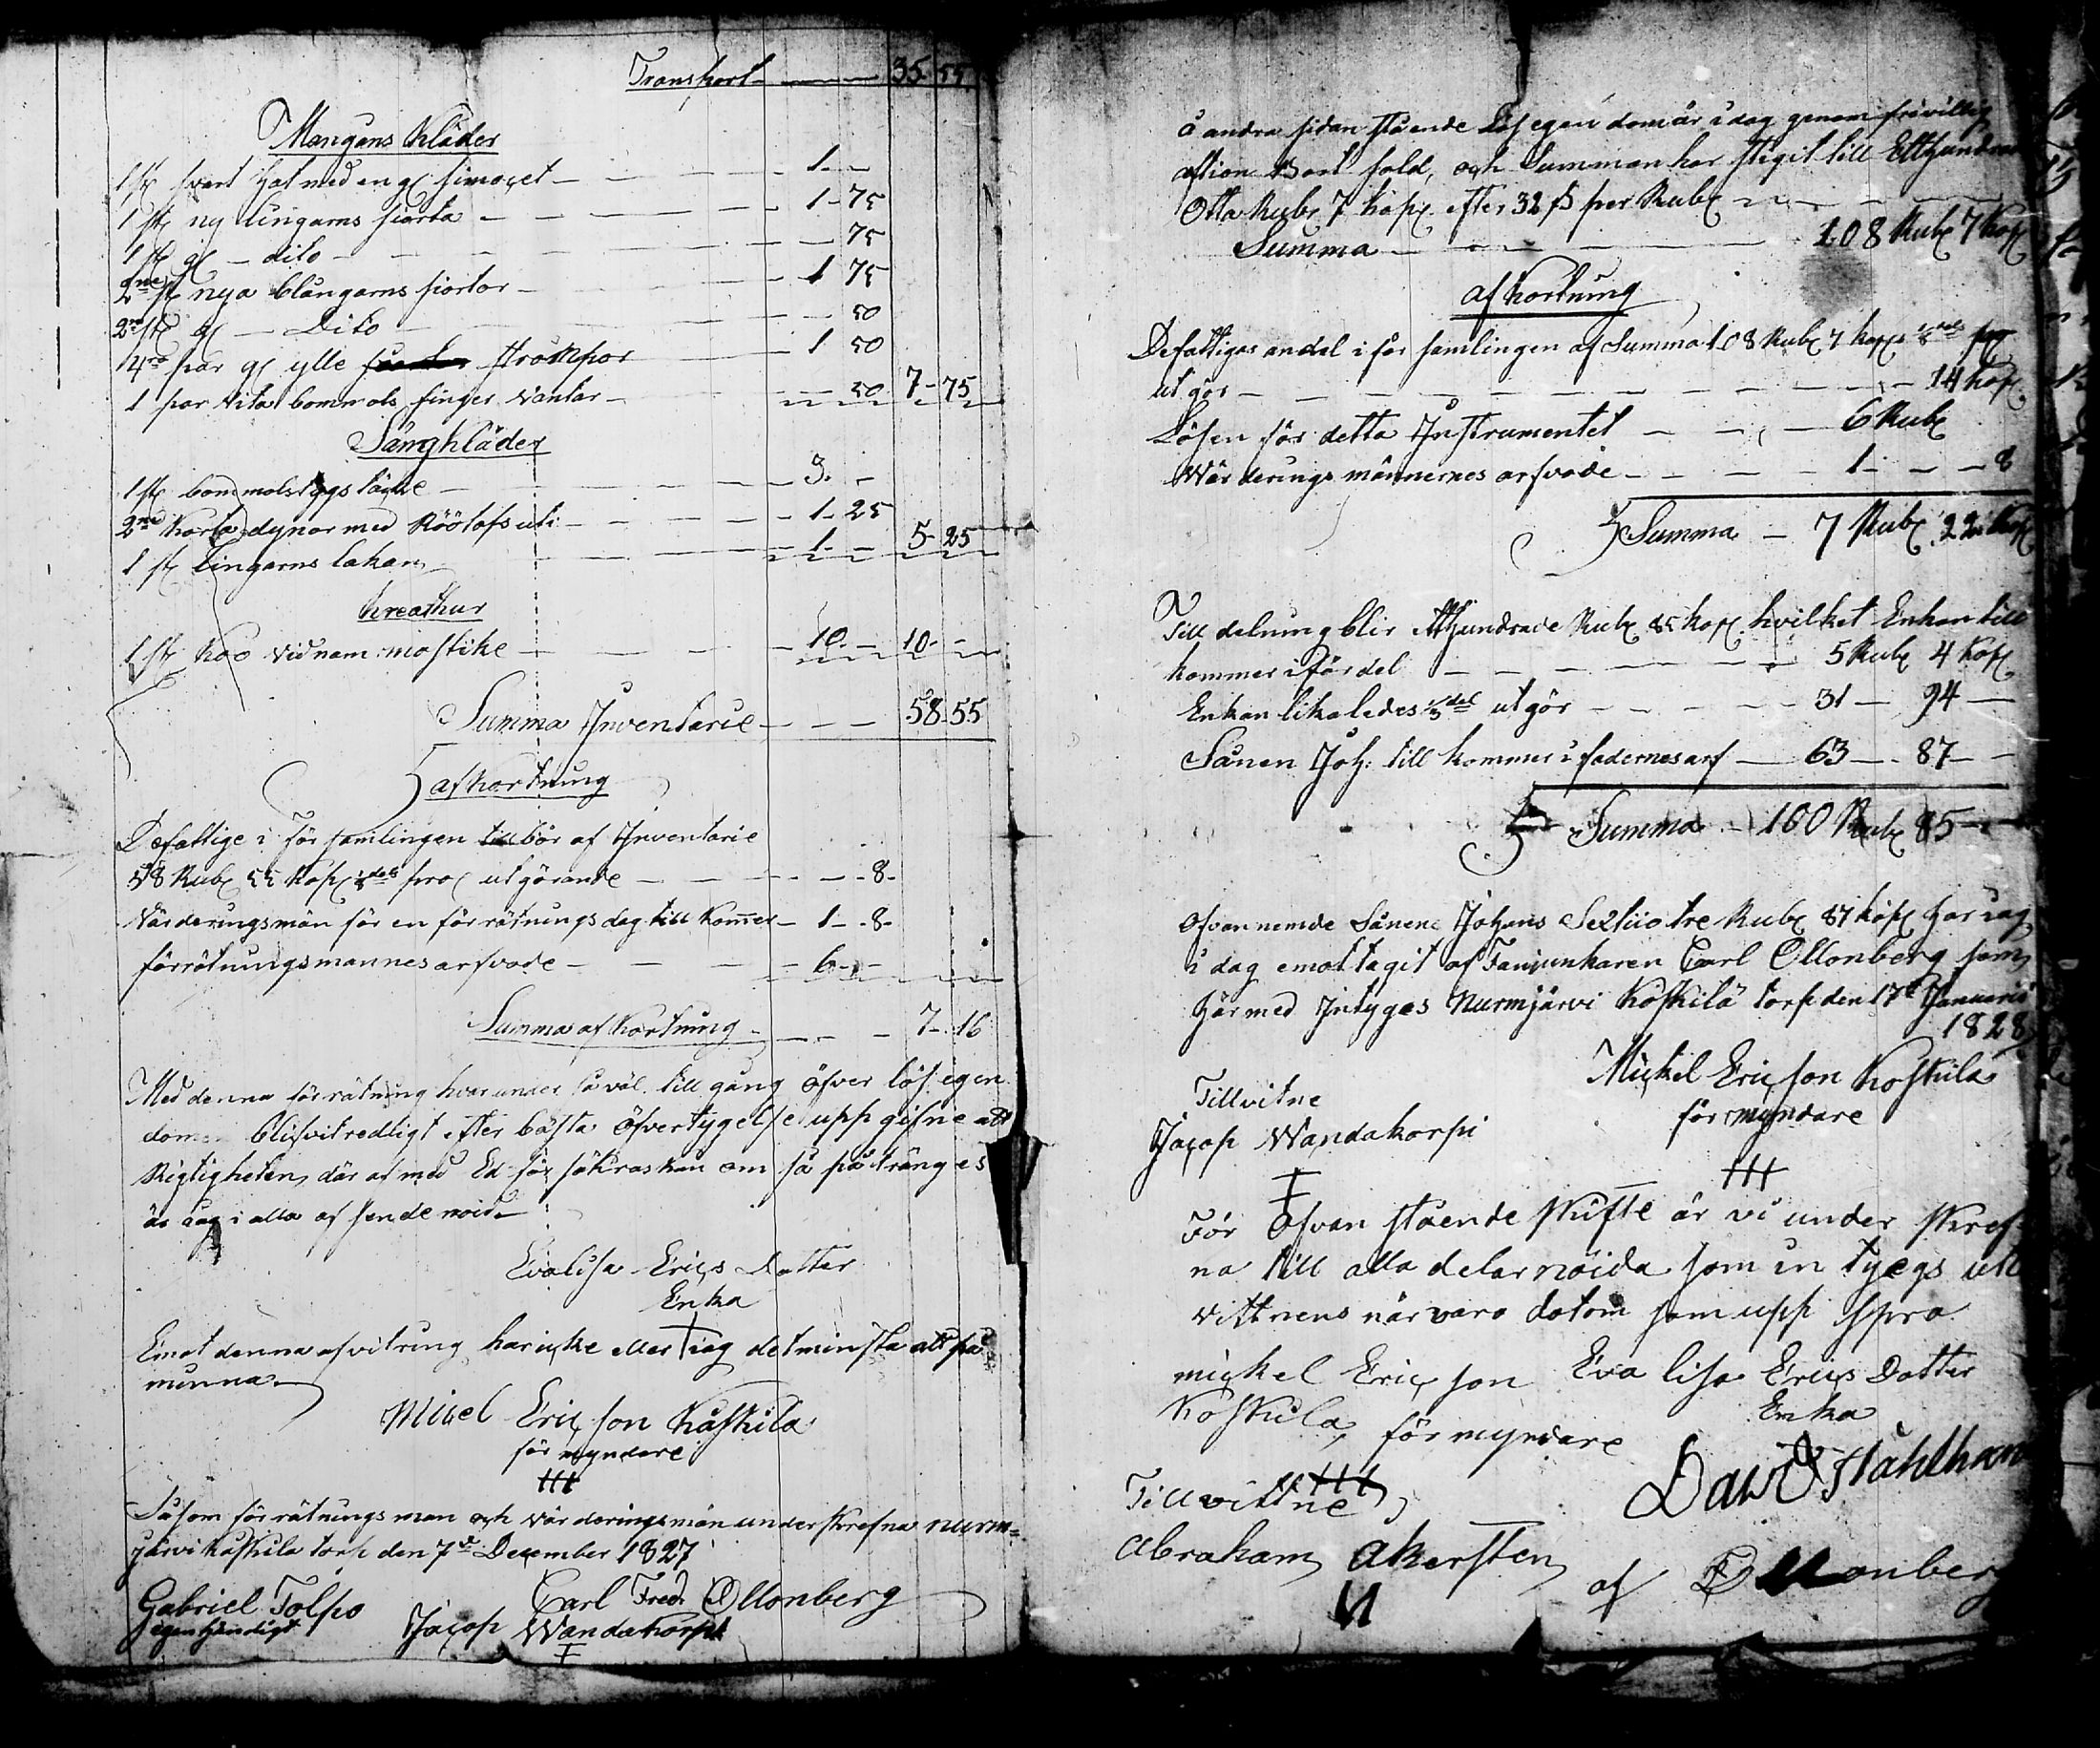 Transport — 35 55
Mangans Kläder
1 st svart Hat med en gl simocet — 1 -
1 st ny lingarns siorta — 1 - 75
1 st gl — dito — 75
2ne st nya blångarns siortor — 1 75
2ne st gl — Dito — 50
4ra par gl ylle strömpor — 1 50
1 par vita bommols finger vantar — 50 7 - 75
Sängkläder
1 st bommolstygs täcke — 3. -
2ne korta dynor med Röötafs uti — 1 - 25
1 st lingarns lakan — 1 - - 5 - 25
kreathur
1 st koo vid nam mostike — 10. - 10 - -
Summa Inventarie — 58 55
afkortning
De fattige i församlingen tillbör af Inventarie
58 Rub 55 kop 1/8 del proc utgörande — 8 -
Värderingsmän för en förrätnings dag till komer — 1 - 8 -
förrätningsmannes arfvode — 6 -
Summa af kortning — 7 - 16
Med denna förrätning hvarunder såväl till gång öfver lös egen
domen blifvit redligt efter bästa öfvertygelse upp gifne att
Rigtigheten där af med Ed för säkras kan om så på tränges
är iag i alla af sende nöid
Evalisa Erics Dotter
Enka
Emot denna afvitring har icke eller iag det minsta att på
minna
Micel Ericson Kåskila
för myndare
Såsom förrätnings man och Värderingsmän underskrefna nurm=
järvi Kåskila torp den 7de December 1827
Gabriel Tolpo
egenhändigt
Carl Fred. Ollonberg
Jacop Wandakorpi
å andra sidan stående Lös egendom är i dag genom frivillig
aktion Bort såld, och Summan har stigit till Etthundra
Otta Rub 7 kop. efter 32 ß per Rub
Summa — 108 Rub 7 kop
afkortning
De fattigas andel i församlingen af Summa 108 Rub 7 kop 1/8 del
utgör — 14 kop
Lösen för detta Instrumentet — 6 Rub
Wärderings männernes arfvode — 1 - - 8
Summa — 7 Rub 22 kop
Till delning blir Etthundrade Rub 85 kop. hvilket Enkan till
kommer i fördel — 5 Rub 4 kop
Enkan likaledes 1/3 del utgör — 31 — 94 —
Sånen Joh: till kommer i fadernes arf — 63 — 87 —
Summa — 100 Rub 85 —
Ofvannemde Sånens Johans Sextiio tre Rub 87 kop har iag
i dag emottagit af Fanjunkaren Carl Ollonberg som
här med Intyges Nurmjärvi Koskilä torp den 17de Januarii
1828
Mickel Ericson Koskila
för myndare
Till vitne
Jacop Wandakorpi
För Ofvan stående Skifte är vi under skref
na till alla delar nöida som in tyegs utt
vittnens närvaro datom som upp spra
mickel Ericson Koskila, för myndare
Eva lisa Erics Dotter
Enka
Till vittne
Abraham Akersten
David Ståhlhan
af Ollonberg